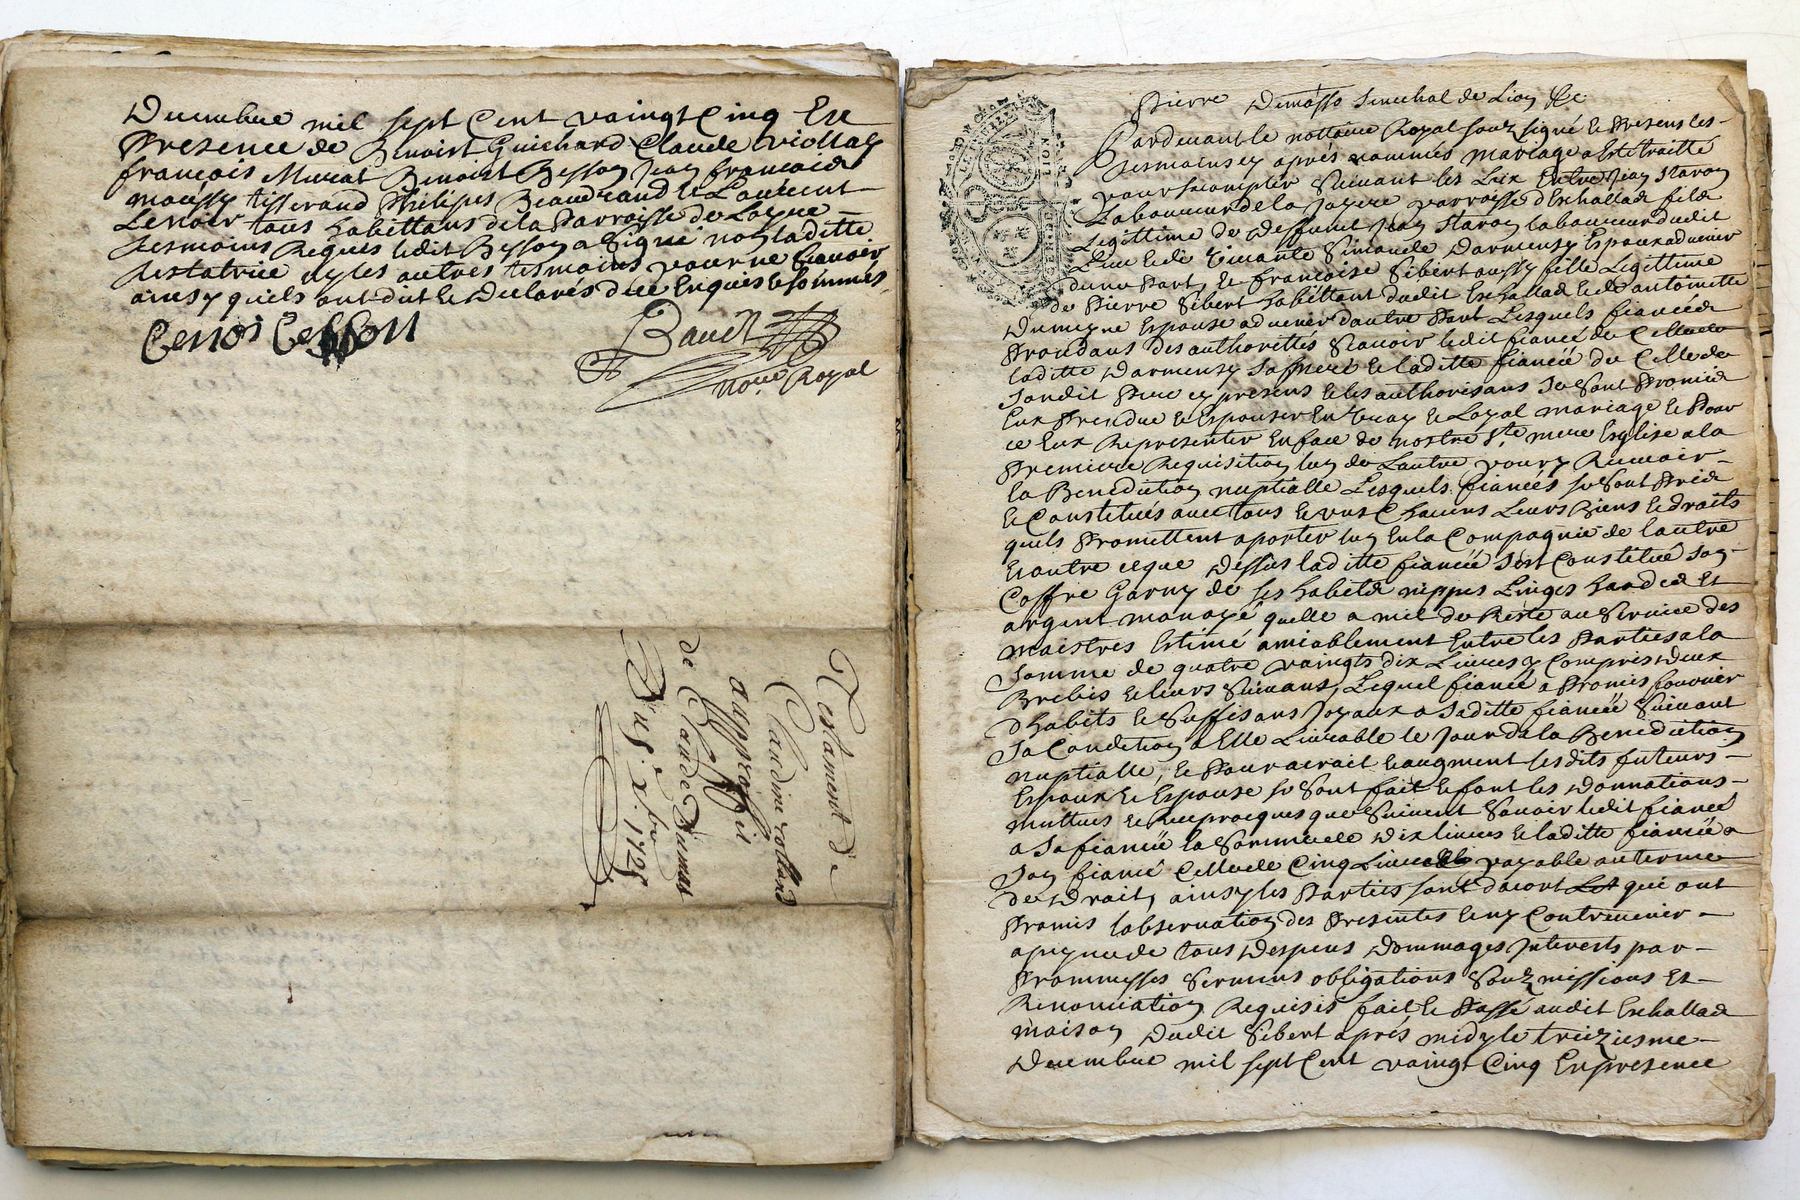 Decembre mil sept Cent vaingt Cinq En
Presence de Benoist Guichard Claude viollay
françois Murat Benoist Besson Jean françois
moussy tisserand Philipes Beaudrand et Laurent
Lenoir tous habittans de la Parroisse de Loyre
tesmoins Requis ledit Besson a Signé non laditte
testatrice ny les autres tesmoins pour ne scavoir
ainsy quils ont dit et Declarés de ce Enquis et sommés
Baudt
nore Royal
Testament de
Claudine rolland
au proffit
de Claude Dumas
Du 5e xbre 1725
Pierre Demasso Senechal de Lion &c
Pardevant le nottaire Royal soubz signé et Presens les
tesmoins cy aprés nommés mariage a esté traitté
pour saccomplir Suivant les Loix Entre Jean
Laboureur de la parroisse d'Eschallad fils
Legittime de deffunt Jean laboureur dudit
Lieu et de Simande Darmensy Espoux advenir
dune Part, et françoise Sibert aussy fille Legittime
de Pierre Sibert habittant dudit Eschallad et de antoinette
Espouse advenir dautre Part Lesquels fiancés
Procedans des authorittés Scavoir ledit fiancé de Celle de
laditte Darmensy Sa mere et laditte fiancée de Celle de
Sondit Pere cy presens et les authorisans Se sont Promis
Eux Prendre et Espouser En vray et Loyal mariage et Pour
ce Eux Representer En face de nostre Ste mere Esglise a la
Premiere Requisition lun de Lautre pour y Recevoir
la Benediction nuptialle Lesquels fiancés se sont Pris
et Constitués avec tous et uns Chacuns Leurs Biens et droits
quils Promettent aporter lun En la Compagnie de lautre
Et outre ce que Dessus laditte fiancée sest Constitué Son
Coffre Garny de ses habits nippes Linges hardes Et
argent monoyé quelle a mis de Reste au Service des
maistres Estimé amiablement Entre les Parties a la
Somme de quatre vaingts dix Livres y Compris Deux
Brebis et leurs Suivans, Lequel fiancé a Promis fournir
d'habits et Suffisans Joyaux a Saditte fiancée Suivant
Sa Condition a Elle Livrable le Jour de la Benediction
nuptialle, et Pour acroit et augment lesdits futeurs
Espoux et Espouse se sont fait et font les Donnations
muttues et Reciprocques que Suivent Scavoir ledit fiancé
a Sa fiancée la Somme de Dix livres et laditte fiancée a
Son fiancé Celle de Cinq Livres payable au terme
de Droit, ainsy les Parties sont dacort qui ont
Promis lobservation des Presentes et ny Contrevenir
a peyne de tous Despens Dommages Interests par
Prommesses Sermens obligations Soubzmissions Et
Renonciation Requises fait et Passé audit Eschallad
maison Dudit Sibert aprés midy le treiziesme
Decembre mil sept Cent vaingt Cinq En presence